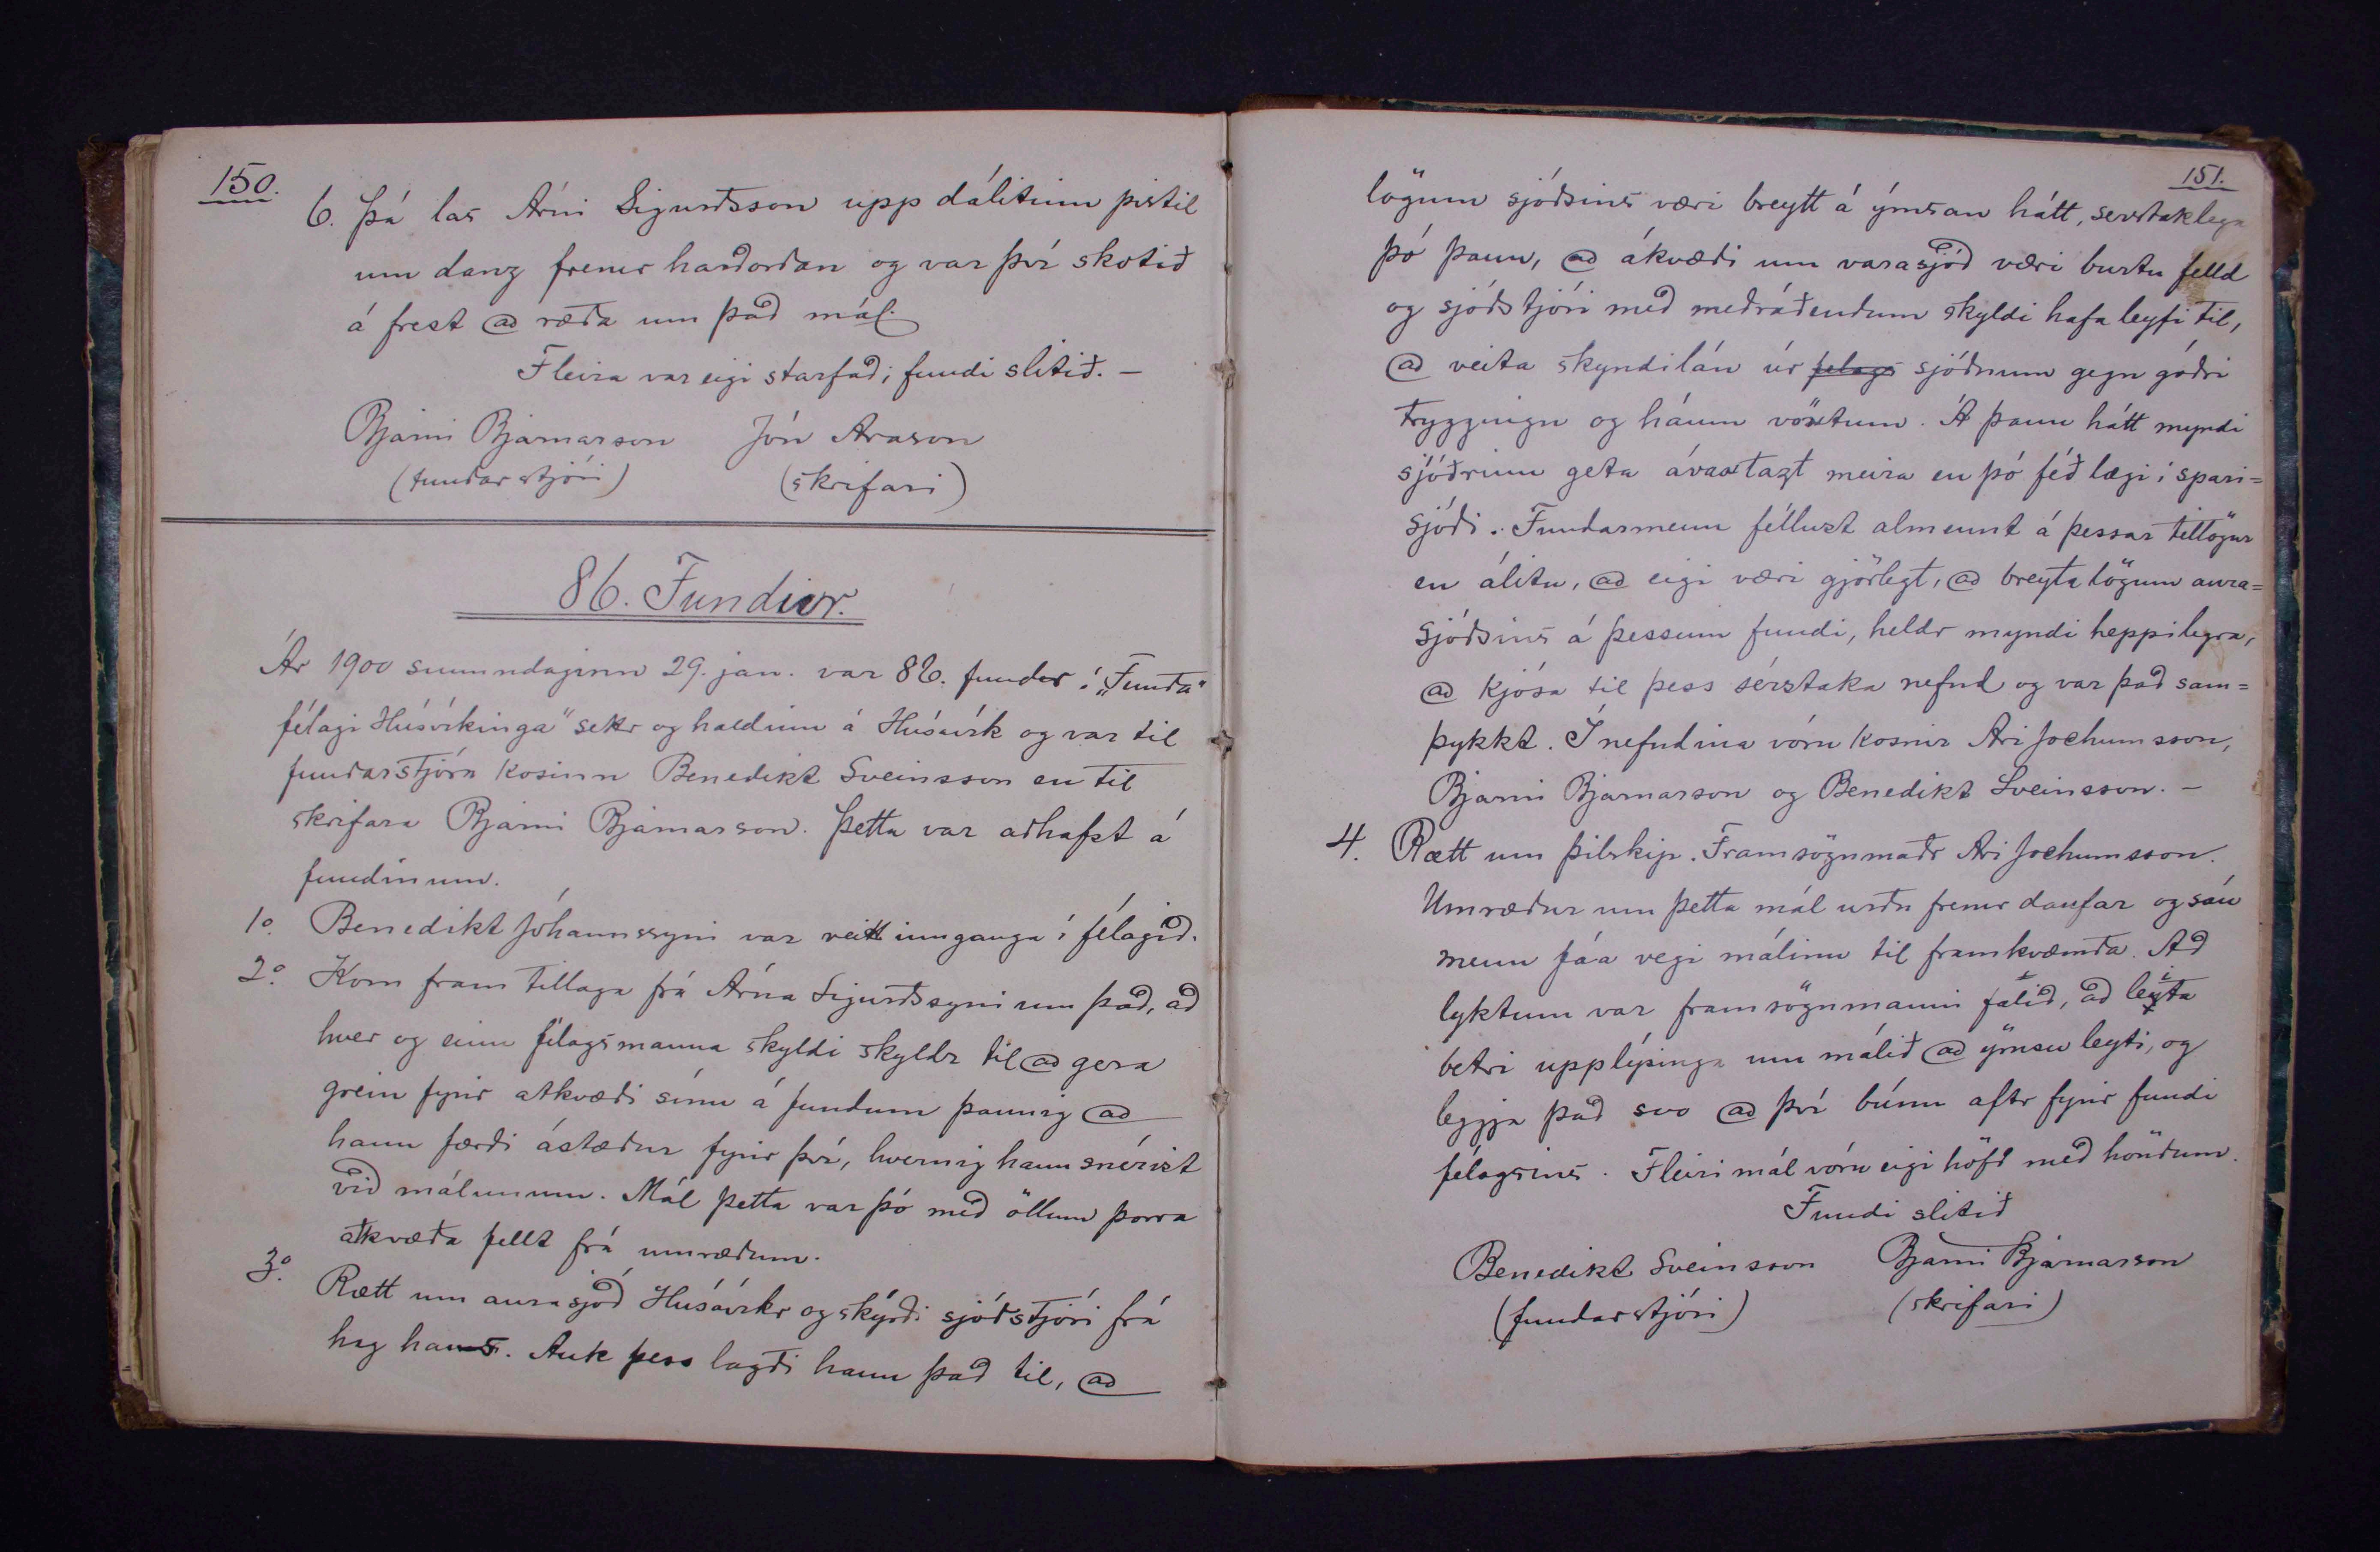 150.
6. Þá las Árni Sigurðsson upp dálitinn pistil
um danz fremr harðorðan og var því skotið
á frest að ræða um það mál.
Fleira var eigi starfað; fundi slitið. —
Bjarni Bjarnarson Jón Arason
(fundarstjóri) (skrifari)
86. Fundur.
Ár 1900 sunnudaginn 29. jan. var 86. fundr í „Funda"
félagi Húsvíkinga" settr og haldinn á Húsavík og var til
fundarstjóra kosinn Benedikt Sveinsson en til
skrifara Bjarni Bjarnarson. Þetta var aðhafst á
fundinum.
1o. Benedikt Jóhannssyni var veitt innganga í félagið.
2o. Kom fram tillaga frá Árna Sigurðssyni um það, að
hver og einn félagsmanna skyldi skyldr til að gera
grein fyrir atkvæði sínu á fundum þannig að
hann færði ástæður fyrir því, hvernig hann snérist
við málunum. Mál þetta var þó með öllum þorra
atkvæða fellt frá umræðum.
3o. Rætt um aurasjóð Húsavíkr og skýrði sjóðstjóri frá
hag hans. Auk þess lagði hann það til, að
151.
lögum sjóðsins væri breytt á ýmsan hátt, serstaklega
þó þann, að ákvæði um varasjóð væri burtu felld
og sjóðstjóri með meðráðendum skyldi hafa leyfi til,
að veita skyndilán úr felags sjóðnum gegn góðri
tryggingu og háum vöxtum. Á þann hátt myndi
sjóðrinn geta ávaxtazt meira en þó féð lægi í spari=
sjóði. Fundarmenn féllust almennt á þessar tillögur
en álitu, að eigi væri gjörlegt, að breyta lögum aura=
sjóðsins á þessum fundi, heldr myndi heppilegra,
að kjósa til þess sérstaka nefnd og var það sam=
þykkt. Í nefndina vóru kosnir Ari Jochumsson,
Bjarni Bjarnarson og Benedikt Sveinsson. —
4. Rætt um þilskip. Framsögumaðr Ari Jochumsson.
Umræður um þetta mál urðu fremr daufar og sáu
menn fáa vegi málinu til framkvæmda. Að
lyktum var framsögumanni falið, að leita
betri upplýsinga um málið að ýmsu leyti, og
leggja það svo að því búnu aftr fyrir fundi
félagsins. Fleiri mál vóru eigi höfð með höndum.
Fundi slitið
Benedikt Sveinsson Bjarni Bjarnarson
(fundarstjóri) (skrifari)